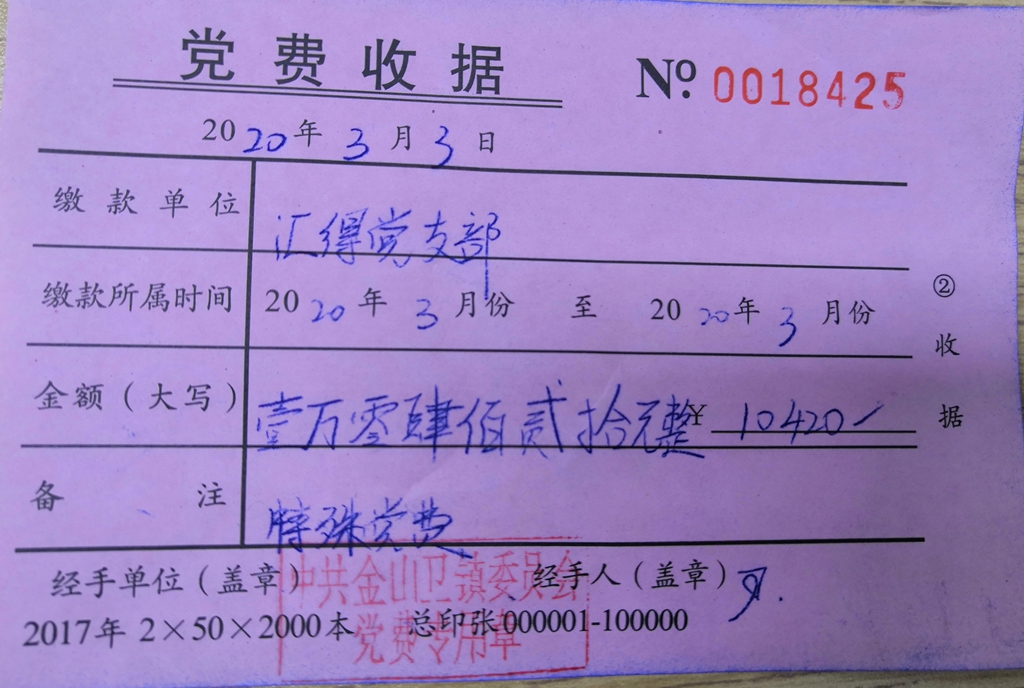 党费收据 Nº 0018425
2020年3月3日
缴款单位 汇得党支部
缴款所属时间 2020年3月份 至 2020年3月份
金额（大写） 壹万零肆佰贰拾元整 ¥ 10420
备注 特殊党费
②收据
经手单位（盖章） 经手人（盖章）
中共金山卫镇委员会
党费专用章
2017年 2×50×2000本 总印张000001-100000